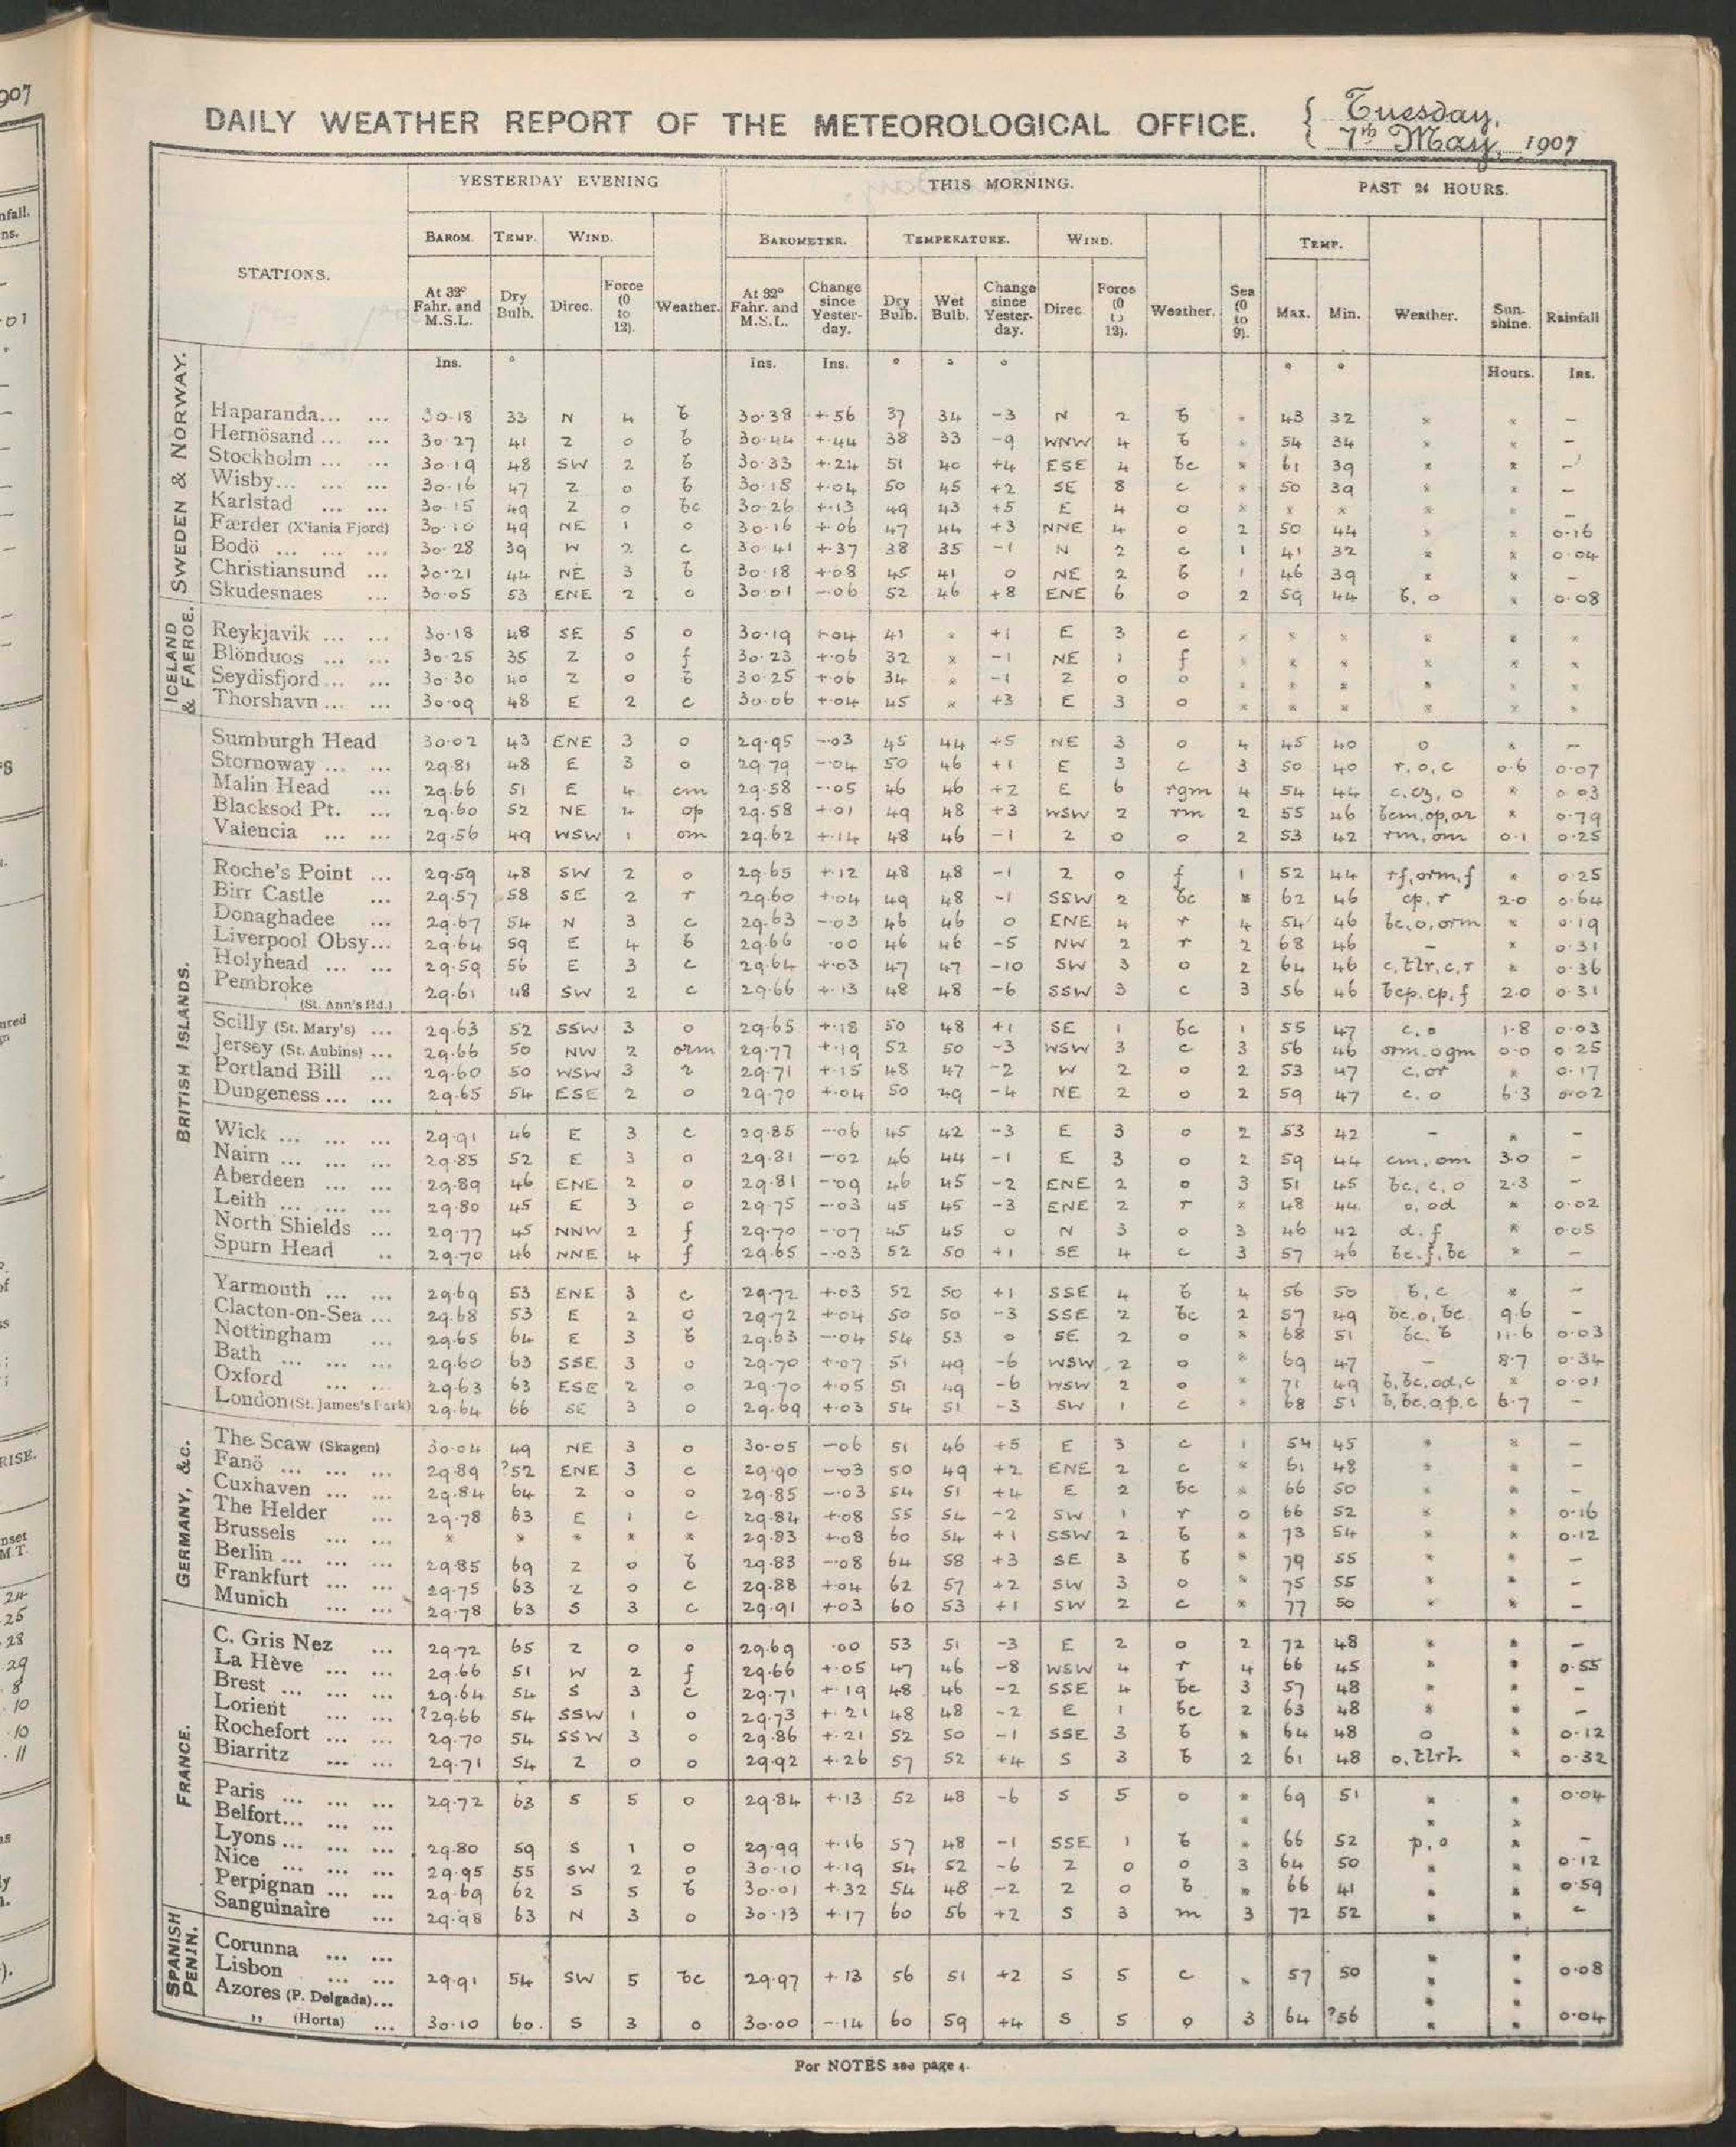 DAILY WEATHER REPORT OF THE METEOROLOGICAL OFFICE. { Tuesday, 7th May, 1907
YESTERDAY EVENING THIS MORNING. PAST 24 HOURS.
BAROM. TEMP. WIND. BAROMETER. TEMPERATURE. WIND. TEMP.
STATIONS. At 32° Fahr. and M.S.L. Dry Bulb. Direc. Force (0 to 12). Weather. At 32° Fahr. and M.S.L. Change since Yesterday. Dry Bulb. Wet Bulb. Change since Yesterday. Direc Force (0 to 12). Weather. Sea (0 to 9). Max. Min. Weather. Sunshine. Rainfall
Ins. ° Ins. Ins. ° ° ° ° ° Hours. Ins.
SWEDEN & NORWAY.
Haparanda... ... 30.18 33 N 4 b 30.38 +.56 37 34 -3 N 2 b * 43 32 * * -
Hernösand ... ... 30.27 41 Z 0 b 30.44 +.44 38 33 -9 WNW 4 b * 54 34 * * -
Stockholm ... ... 30.19 48 SW 2 b 30.33 +.24 51 40 +4 ESE 4 bc * 61 39 * * -
Wisby... ... ... 30.16 47 Z 0 b 30.18 +.04 50 45 +2 SE 8 c * 50 39 * * -
Karlstad ... ... 30.15 49 Z 0 bc 30.26 +.13 49 43 +5 E 4 o * * * * * -
Færder (X'iania Fjord) 30.10 49 NE 1 o 30.16 +.06 47 44 +3 NNE 4 o 2 50 44 * * 0.16
Bodö ... ... ... 30.28 39 W 2 c 30.41 +.37 38 35 -1 N 2 c 1 41 32 * * 0.04
Christiansund ... 30.21 44 NE 3 b 30.18 +.08 45 41 0 NE 2 b 1 46 39 * * -
Skudesnaes ... 30.05 53 ENE 2 o 30.01 -.06 52 46 +8 ENE 6 o 2 59 44 b, o * 0.08
ICELAND & FAEROE.
Reykjavik ... ... 30.18 48 SE 5 o 30.19 +.04 41 * +1 E 3 c * * * * * *
Blönduos ... ... 30.25 35 Z 0 f 30.23 +.06 32 * -1 NE 1 f * * * * * *
Seydisfjord ... ... 30.30 40 Z 0 b 30.25 +.06 34 * -1 Z 0 o * * * * * *
Thorshavn ... ... 30.09 48 E 2 c 30.06 +.04 45 * +3 E 3 o * * * * * *
BRITISH ISLANDS.
Sumburgh Head 30.02 43 ENE 3 o 29.95 -.03 45 44 +5 NE 3 o 4 45 40 o * -
Stornoway ... ... 29.81 48 E 3 o 29.79 -.04 50 46 +1 E 3 c 3 50 40 r, o, c 0.6 0.07
Malin Head ... 29.66 51 E 4 cm 29.58 -.05 46 46 +2 E 6 rgm 4 54 44 c, cz, o * 0.03
Blacksod Pt. ... 29.60 52 NE 4 op 29.58 +.01 49 48 +3 WSW 2 rm 2 55 46 bcm, op, or * 0.79
Valencia ... ... 29.56 49 WSW 1 om 29.62 +.14 48 46 -1 Z 0 o 2 53 42 rm, om 0.1 0.25
Roche's Point ... 29.59 48 SW 2 o 29.65 +.12 48 48 -1 Z 0 f 1 52 44 rf, orm, f * 0.25
Birr Castle ... 29.57 58 SE 2 r 29.60 +.04 49 48 -1 SSW 2 bc * 62 46 cp, r 2.0 0.64
Donaghadee ... 29.67 54 N 3 c 29.63 -.03 46 46 0 ENE 4 r 4 54 46 bc, o, orm * 0.19
Liverpool Obsy... 29.64 59 E 4 b 29.66 .00 46 46 -5 NW 2 r 2 68 46 - * 0.31
Holyhead ... ... 29.59 56 E 3 c 29.64 +.03 47 47 -10 SW 3 o 2 64 46 c, tlr, c, r * 0.36
Pembroke (St. Ann's Hd.) 29.61 48 SW 2 c 29.66 +.13 48 48 -6 SSW 3 c 3 56 46 bcp, cp, f 2.0 0.31
Scilly (St. Mary's) ... 29.63 52 SSW 3 o 29.65 +.18 50 48 +1 SE 1 bc 1 55 47 c. o 1.8 0.03
Jersey (St. Aubins) ... 29.66 50 NW 2 orm 29.77 +.19 52 50 -3 WSW 3 c 3 56 46 orm. ogm 0.0 0.25
Portland Bill ... 29.60 50 WSW 3 r 29.71 +.15 48 47 -2 W 2 o 2 53 47 c, or * 0.17
Dungeness ... ... 29.65 54 ESE 2 o 29.70 +.04 50 49 -4 NE 2 o 2 59 47 c. o 6.3 0.02
Wick ... ... ... 29.91 46 E 3 c 29.85 -.06 45 42 -3 E 3 o 2 53 42 - * -
Nairn ... ... ... 29.85 52 E 3 o 29.81 -.02 46 44 -1 E 3 o 2 59 44 cm, om 3.0 -
Aberdeen ... ... 29.89 46 ENE 2 o 29.81 -.09 46 45 -2 ENE 2 o 3 51 45 bc, c, o 2.3 -
Leith ... ... ... 29.80 45 E 3 o 29.75 -.03 45 45 -3 ENE 2 r * 48 44 o, od * 0.02
North Shields ... 29.77 45 NNW 2 f 29.70 -.07 45 45 0 N 3 o 3 46 42 d. f * 0.05
Spurn Head .. 29.70 46 NNE 4 f 29.65 -.03 52 50 +1 SE 4 c 3 57 46 bc. f, bc * -
Yarmouth ... ... 29.69 53 ENE 3 c 29.72 +.03 52 50 +1 SSE 4 b 4 56 50 b, c * -
Clacton-on-Sea ... 29.68 53 E 2 o 29.72 +.04 50 50 -3 SSE 2 bc 2 57 49 bc, o, bc 9.6 -
Nottingham ... 29.65 64 E 3 b 29.63 -.04 54 53 0 SE 2 o * 68 51 bc. b 11.6 0.03
Bath ... ... ... 29.60 63 SSE 3 o 29.70 +.07 51 49 -6 WSW 2 o * 69 47 - 8.7 0.34
Oxford ... ... 29.63 63 ESE 2 o 29.70 +.05 51 49 -6 WSW 2 o * 71 49 b, bc, od, c * 0.01
London (St. James's Park) 29.64 66 SE 3 o 29.69 +.03 54 51 -3 SW 1 c * 68 51 b, bc, o, p, c 6.7 -
GERMANY, &c.
The Scaw (Skagen) 30.04 49 NE 3 o 30.05 -.06 51 46 +5 E 3 c 1 54 45 * * -
Fanö ... ... ... 29.89 ?52 ENE 3 c 29.90 -.03 50 49 +2 ENE 2 c * 61 48 * * -
Cuxhaven ... ... 29.84 64 Z 0 o 29.85 -.03 54 51 +4 E 2 bc * 66 50 * * -
The Helder ... 29.78 63 E 1 c 29.84 +.08 55 54 -2 SW 1 r 0 66 52 * * 0.16
Brussels ... ... * * * * * 29.83 +.08 60 54 +1 SSW 2 b * 73 54 * * 0.12
Berlin ... ... ... 29.85 69 Z 0 b 29.83 -.08 64 58 +3 SE 3 b * 79 55 * * -
Frankfurt ... ... 29.75 63 Z 0 c 29.88 +.04 62 57 +2 SW 3 o * 75 55 * * -
Munich ... ... 29.78 63 S 3 c 29.91 +.03 60 53 +1 SW 2 c * 77 50 * * -
FRANCE.
C. Gris Nez ... 29.72 65 Z 0 o 29.69 .00 53 51 -3 E 2 o 2 72 48 * * -
La Hève ... ... 29.66 51 W 2 f 29.66 +.05 47 46 -8 WSW 4 r 4 66 45 * * 0.55
Brest ... ... ... 29.64 54 S 3 c 29.71 +.19 48 46 -2 SSE 4 bc 3 57 48 * * -
Lorient ... ... ?29.66 54 SSW 1 o 29.73 +.21 48 48 -2 E 1 bc 2 63 48 * * -
Rochefort ... ... 29.70 54 SSW 3 o 29.86 +.21 52 50 -1 SSE 3 b * 64 48 o * 0.12
Biarritz ... ... 29.71 54 Z 0 o 29.92 +.26 57 52 +4 S 3 b 2 61 48 o, tlrh * 0.32
Paris ... ... ... 29.72 63 S 5 o 29.84 +.13 52 48 -6 S 5 o * 69 51 * * 0.04
Belfort... ... ... * * *
Lyons ... ... ... 29.80 59 S 1 o 29.99 +.16 57 48 -1 SSE 1 b * 66 52 p, o * -
Nice ... ... ... 29.95 55 SW 2 o 30.10 +.19 54 52 -6 Z 0 o 3 64 50 * * 0.12
Perpignan ... ... 29.69 62 S 5 b 30.01 +.32 54 48 -2 Z 0 b * 66 41 * * 0.59
Sanguinaire ... 29.98 63 N 3 o 30.13 +.17 60 56 +2 S 3 m 3 72 52 * * -
SPANISH PENIN.
Corunna ... ... * *
Lisbon ... ... 29.91 54 SW 5 bc 29.97 +.13 56 51 +2 S 5 c * 57 50 * * 0.08
Azores (P. Delgada)... * *
" (Horta) ... 30.10 60 S 3 o 30.00 -.14 60 59 +4 S 5 o 3 64 ?56 * * 0.04
For NOTES see page 4.